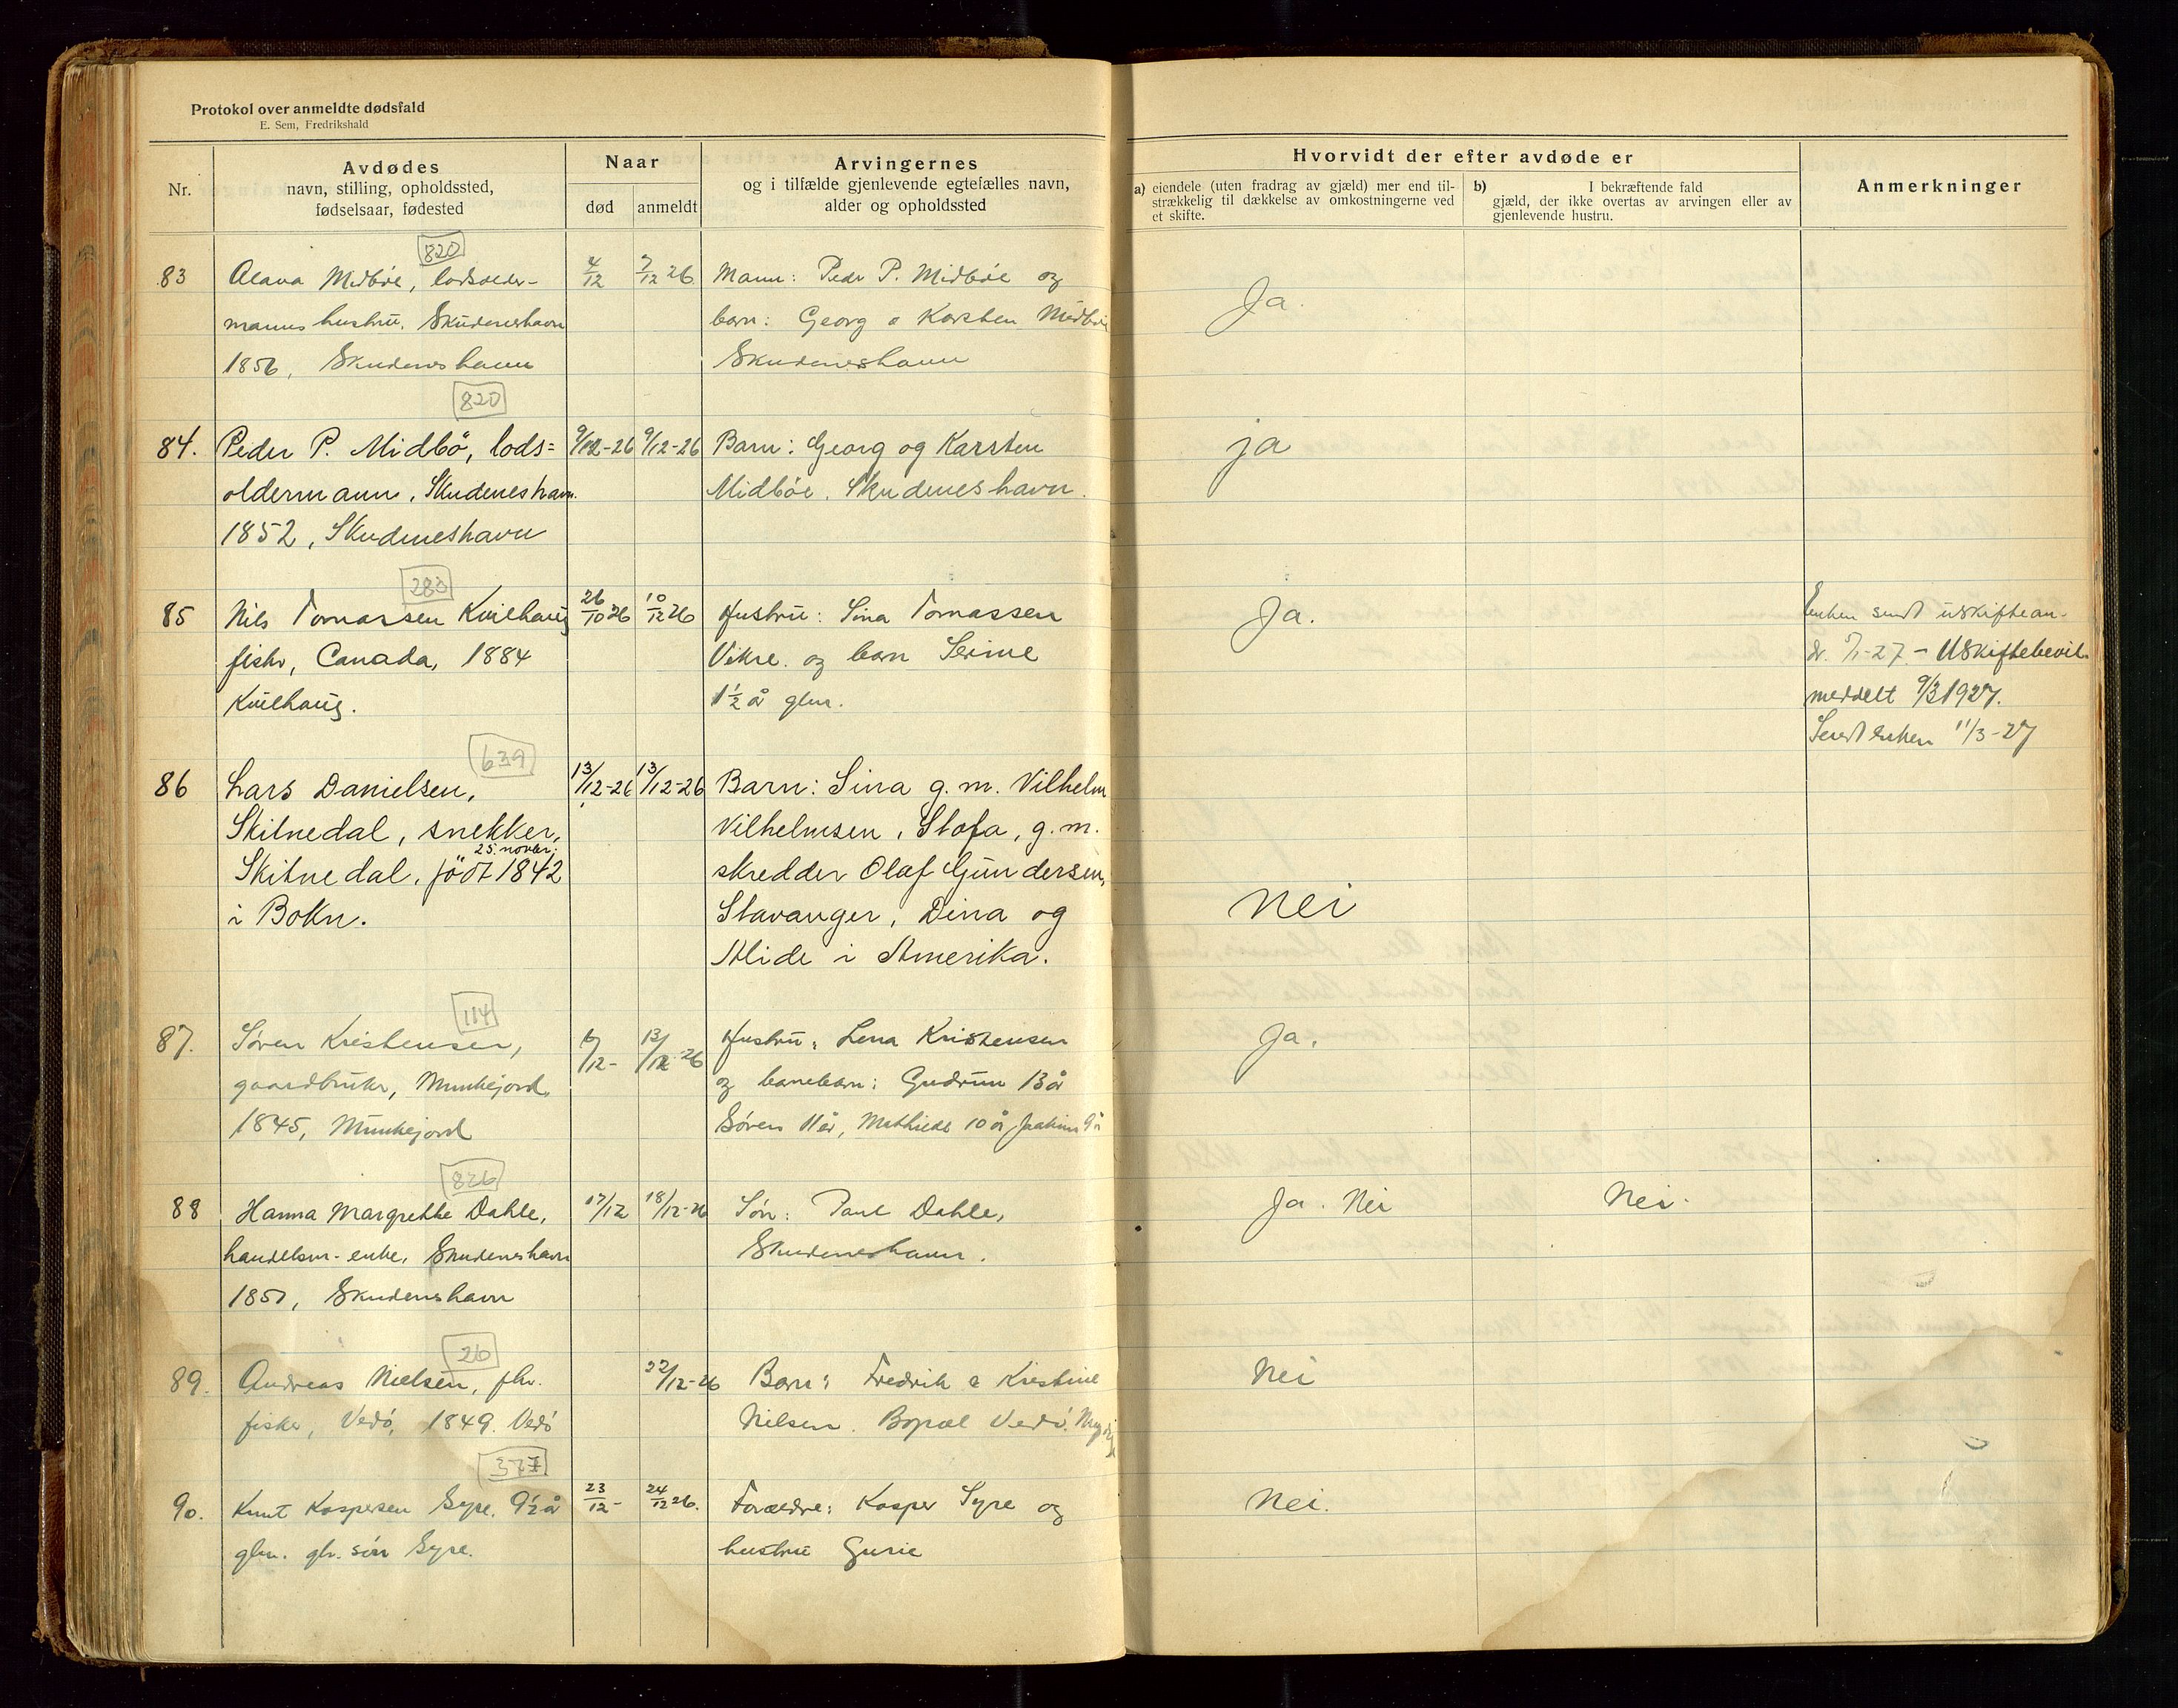 Protokol over anmeldte dødsfald
E. Sem, Fredrikshald
Nr.
Avdødes
navn, stilling, opholdssted,
fødselsaar, fødested
Naar
død
anmeldt
Arvingernes
og i tilfælde gjenlevende egtefælles navn,
alder og opholdssted
Hvorvidt der efter avdøde er
a) eiendele (uten fradrag av gjæld) mer end til-
strækkelig til dækkelse av omkostningerne ved
et skifte.
b) I bekræftende fald
gjæld, der ikke overtas av arvingen eller av
gjenlevende hustru.
Anmerkninger
820
83 Midbøe, lodsolder- 4/12 7/12 26 Mann: Peder P. Midbøe og Ja.
manns hustru. Skudeneshavn barn: Georg o Karsten Midbøe
1856, Skudeneshavn Skudeneshavn
820
84. Peder P. Midbö, lods= 9/12-26 9/12-26 Barn: Georg og Karsten ja
oldermann, Skudeneshavn. Midböe, Skudeneshavn.
1852, Skudeneshavn
283
85 Nils Tomassen Kvilhaug 26/10 26 10/12 26 Hustru: Sina Tomassen Ja. Enken sendt uskiftean-
fisker, Canada, 1884 Vikre. og barn Serine dr. -27 - Uskiftebevil.
Kvilhaug. 1½ å glm. meddelt 9/3 1927.
Sendt enken 11/3-27
639
86 Lars Danielsen, 13/12-26 13/12-26 Barn: Sina g. m. Vilhelm
Skitnedal, snekker, Vilhelmsen, Stofa, g. m.
25. novbr:
Skitnedal, födt 1842 skredder Olaf Gundersen,
i Bokn. Stavanger, Dina og nei
Alide i Amerika.
114
87. Søren Kristensen, 6/12- 13/12 26 Hustru: Lena Kristensen Ja.
gaardbruker, Munkejord, og barnebarn: Gudrun 13 å
1845, Munkejord Søren 11 år, Mathilde 10 å, Joakim 9 å
826
88 Hanna Margrethe Dahle, 17/12 18/12-26 Søn: Paul Dahle, Ja. Nei Nei.
handelsm-enke, Skudeneshavn Skudeneshavn.
Skudeneshavn
26
89. Andreas Nielsen, fhv. 22/12-26 Barn: Fredrik o Kristine Nei
fisker, Vedö, 1849. Vedö Nilsen. Bopæl Vedö.
377
90. Knut Kaspersen Syre. 9½ år 23/12- 24/12 26. Forældre: Kasper Syre og Nei.
glm. gbr. søn Syre. hustru Gurie